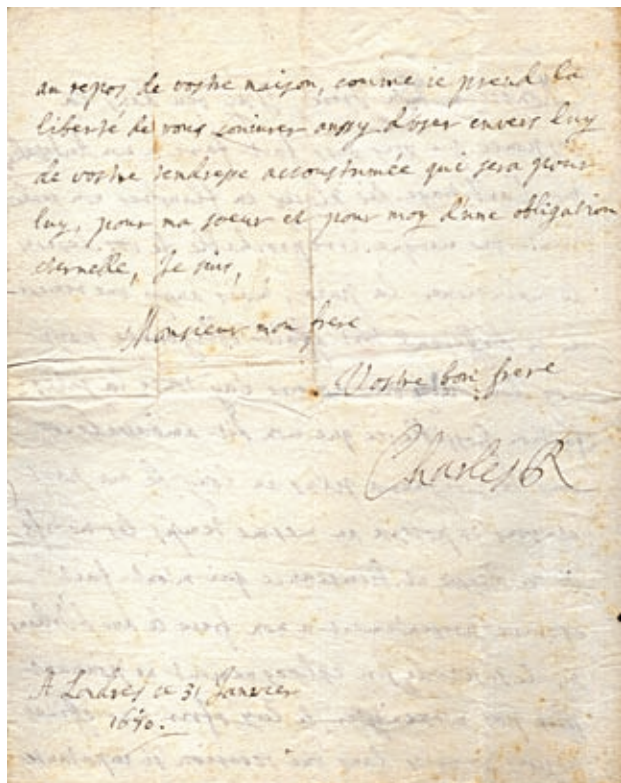 au repos de vostre maison, comme ie prend la
liberté de vous coniurer aussy d'user envers luy
de vostre tendresse accoustumée qui sera pour
luy, pour ma soeur et pour moy d'une obligation
eternelle, Je suis,
Monsieur mon frere
Vostre bon frere
Charles R
A Londres ce 31 Janvier
1670.